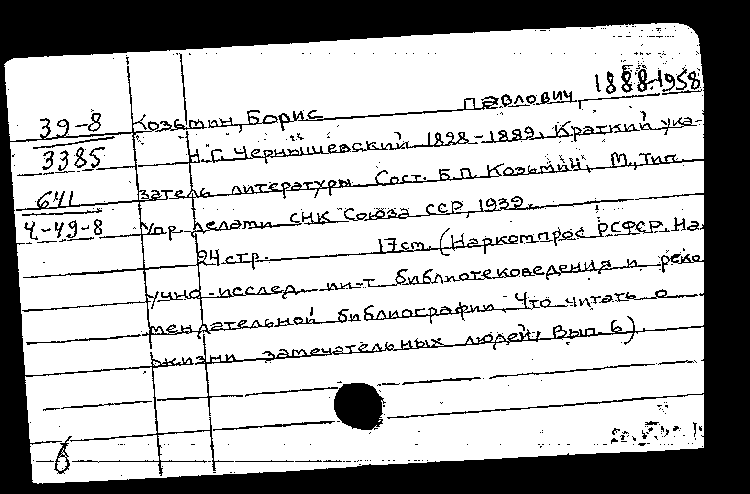 39-8
3385
641
4-49-8
Козьмин, Борис Павлович, 1888-1958
Н.Г. Чернышевский 1828-1889. Краткий ука-
затель литературы. Сост. Б.П. Козьмин, М., Тип.
Упр. делами СНК Союза ССР, 1939.
24 стр. 17 см. (Наркомпрос РСФСР. На
учно-исслед. ин-т библиотековедения и реко
мендательной библиографии. Что читать о
жизни замечательных людей, Вып. 6).
6